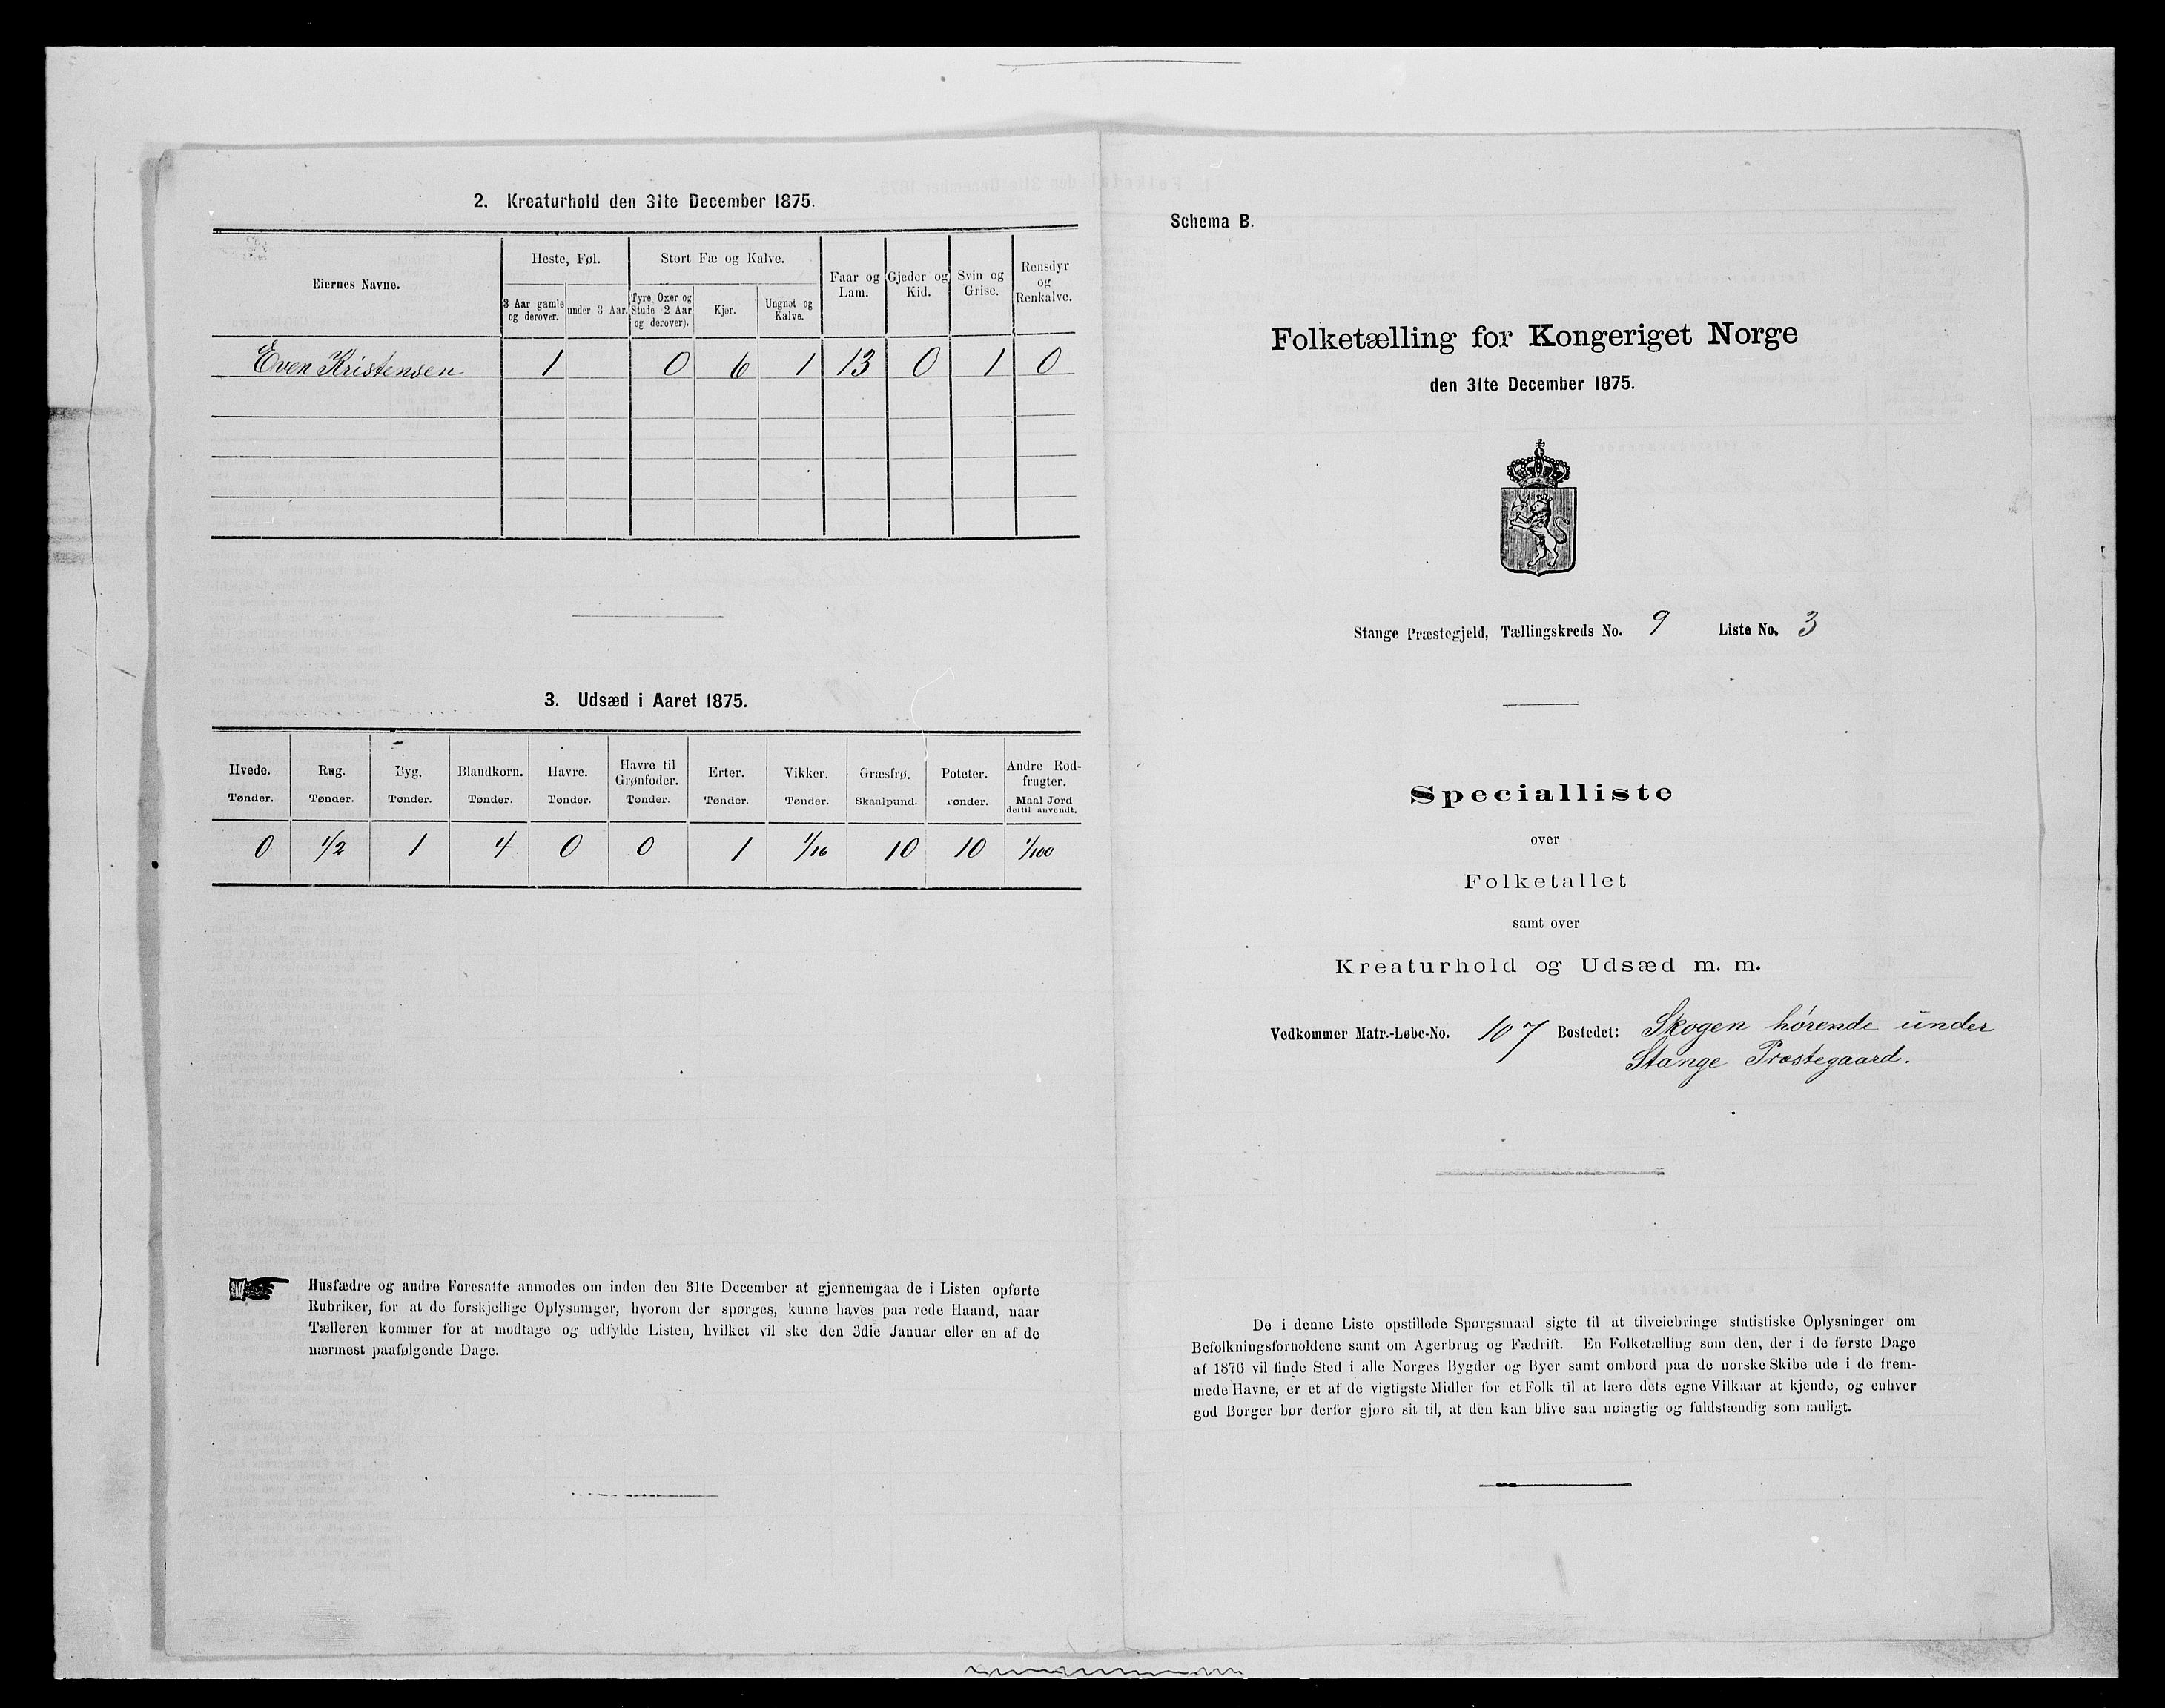 2. Kreaturhold den 31te December 1875.
Eiernes Navne.
Heste, Føl.
Stort Fæ og Kalve.
Faar og Lam.
Gjeder og Kid.
Svin og Grise.
Rensdyr og Renkalve.
3 Aar gamle og derover.
under 3 Aar.
Tyre, Oxer og Stude 2 Aar og derover).
Kjør.
Ungnøt og Kalve.
Even Kristensen 1 0 6 1 13 0 1 0
3. Udsæd i Aaret 1875.
Hvede. Rug. Byg. Blandkorn. Havre. Havre til Grønfoder. Erter. Vikker. Græsfrø. Poteter. Andre Rodfrugter.
Tønder. Tønder. Tønder. Tønder. Tønder. Tønder. Tønder. Tønder. Skaalpund. Tønder. Maal Jord dertil anvendt.
0 1/2 1 4 0 0 1 1/16 10 10 1/100
Husfædre og andre Foresatte anmodes om inden den 31te December at gjennemgaa de i Listen opførte
Rubriker, for at de forskjellige Oplysninger, hvorom der spørges, kunne haves paa rede Haand, naar
Tælleren kommer for at modtage og udfylde Listen, hvilket vil ske den 3die Januar eller en af de
nærmest paafølgende Dage.
Schema B.
Folketælling for Kongeriget Norge
den 31te December 1875.
Stange Præstegjeld, Tællingskreds No. 9 Liste No. 3
Specialliste
over
Folketallet
samt over
Kreaturhold og Udsæd m. m.
Vedkommer Matr.-Løbe-No. 107 Bostedet: Skogen hørende under
Stange Præstegaard.
De i denne Liste opstillede Spørgsmaal sigte til at tilveiebringe statistiske Oplysninger om
Befolkningsforholdene samt om Agerbrug og Fædrift. En Folketælling som den, der i de første Dage
af 1876 vil finde Sted i alle Norges Bygder og Byer samt ombord paa de norske Skibe ude i de frem-
mede Havne, er et af de vigtigste Midler for et Folk til at lære dets egne Vilkaar at kjende, og enhver
god Borger bør derfor gjøre sit til, at den kan blive saa nøiagtig og fuldstændig som muligt.